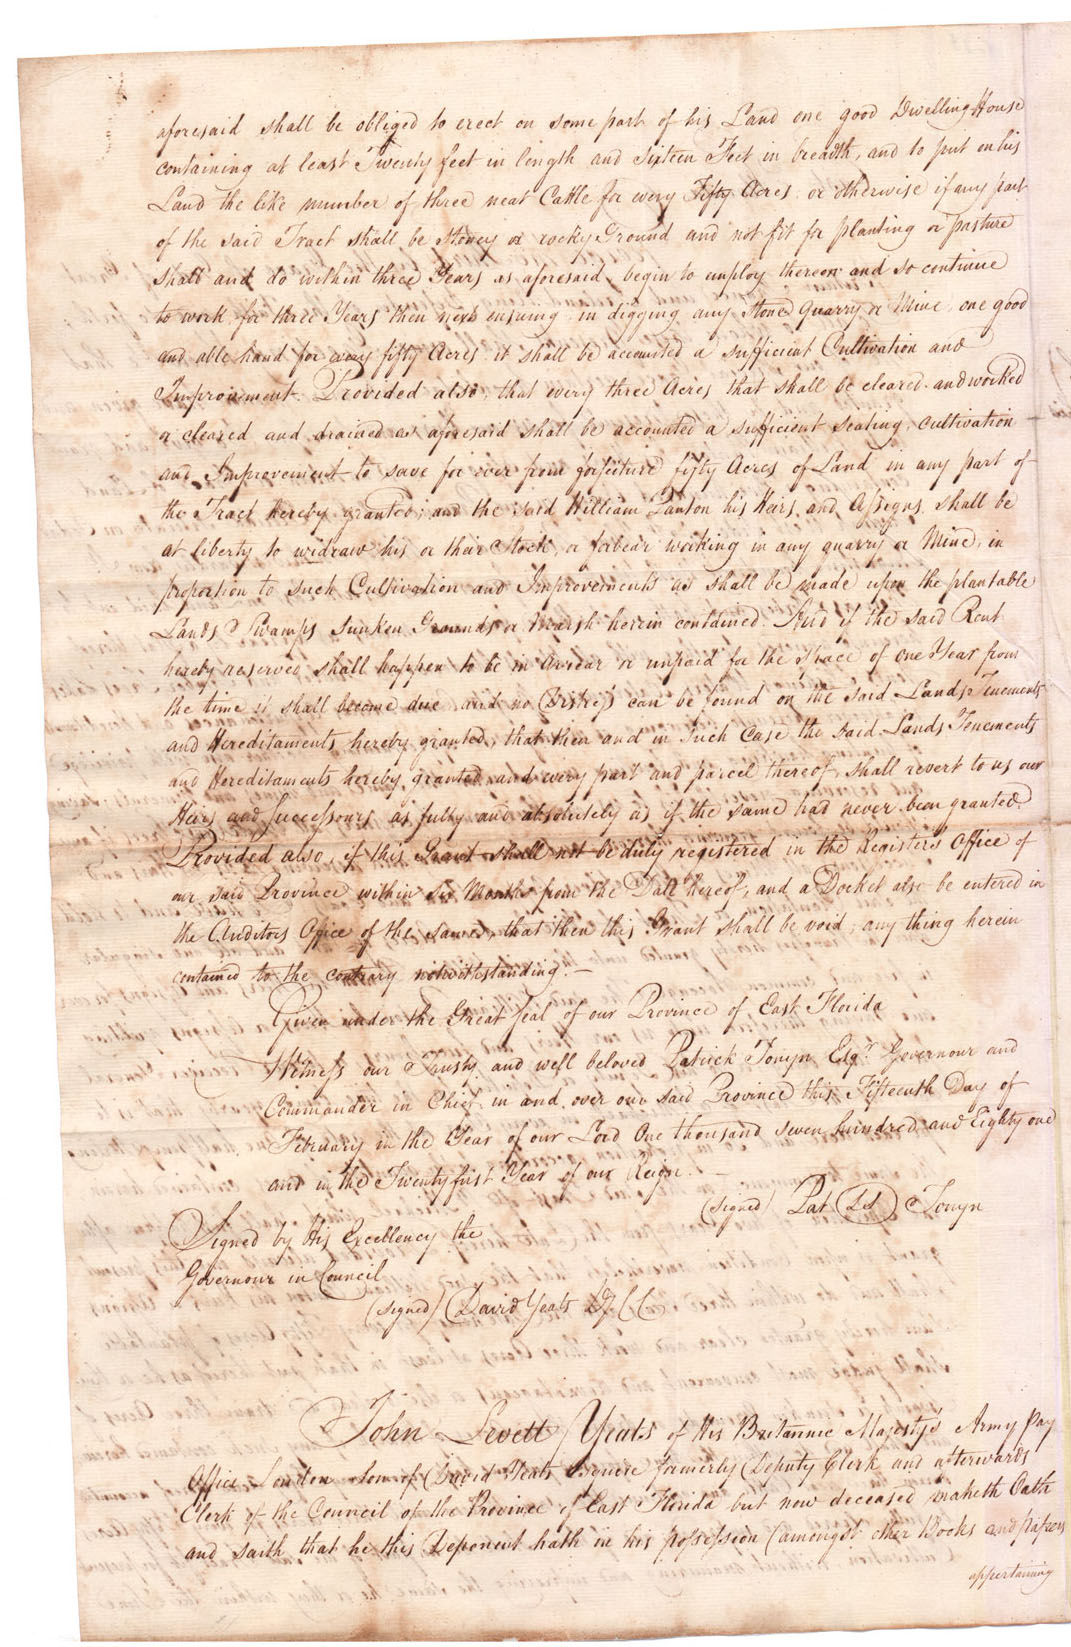 aforesaid shall be obliged to erect on some part of his Land one good Dwelling House
containing at least Twenty feet in length and Sixteen Feet in breadth, and to put on his
Land the like number of three neat Cattle for every Fifty Acres or otherwise if any part
of the said Tract shall be Stoney or rocky Ground and not fit for planting or pasture
shall and do within three Years as aforesaid begin to employ thereon and so continue
to work for three Years then next ensuing in digging any Stone Quarry or Mine, one good
and able hand for every fifty Acres it shall be accounted a sufficient Cultivation and
Improvement. Provided also, that every three Acres that shall be cleared and worked
or cleared and drained as aforesaid shall be accounted a sufficient seating, cultivation
and Improvement to save for ever from forfeiture fifty Acres of Land in any part of
the Tract hereby granted; and the said William Panton his Heirs and Assigns shall be
at liberty to widraw his or their Stock, or forbear working in any quarry or Mine, in
proportion to such Cultivation and Improvements as shall be made upon the plantable
Lands Swamps Sunken Grounds or Marsh herein contained. And if the said Rent
hereby reserved shall happen to be in Arrear or unpaid for the space of one Year from
the time it shall become due and no Distress can be found on the said Lands Tenements
and Hereditaments hereby granted, that then and in such Case the said Lands Tenements
and Hereditaments hereby granted and every part and parcel thereof shall revert to us our
Heirs and Successours as fully and absolutely as if the same had never been granted.
Provided also, if this Grant shall not be duly registered in the Registers Office of
our said Province within Six Months from the Date hereof, and a Docket also be entered in
the Auditors Office of the same, that then this Grant shall be void, any thing herein
contained to the contrary notwithstanding.—
Given under the Great Seal of our Province of East Florida
Witness our Trusty and well beloved Patrick Tonyn Esqr. Governour and
Commander in Chief in and over our said Province this Fifteenth Day of
February in the Year of our Lord One thousand seven hundred and Eighty one
and in the Twenty first Year of our Reign. —
(signed) Pat (LS) Tonyn
Signed by His Excellency the
Governour in Council
(signed) David Yeats D.C.C.
John Levett Yeats of His Britannic Majesty's Army Pay
Office London Son of David Yeats Esquire formerly Deputy Clerk and afterwards
Clerk of the Council of the Province of East Florida but now deceased maketh Oath
and saith that he this Deponent hath in his possession (amongst other Books and papers
appertaining